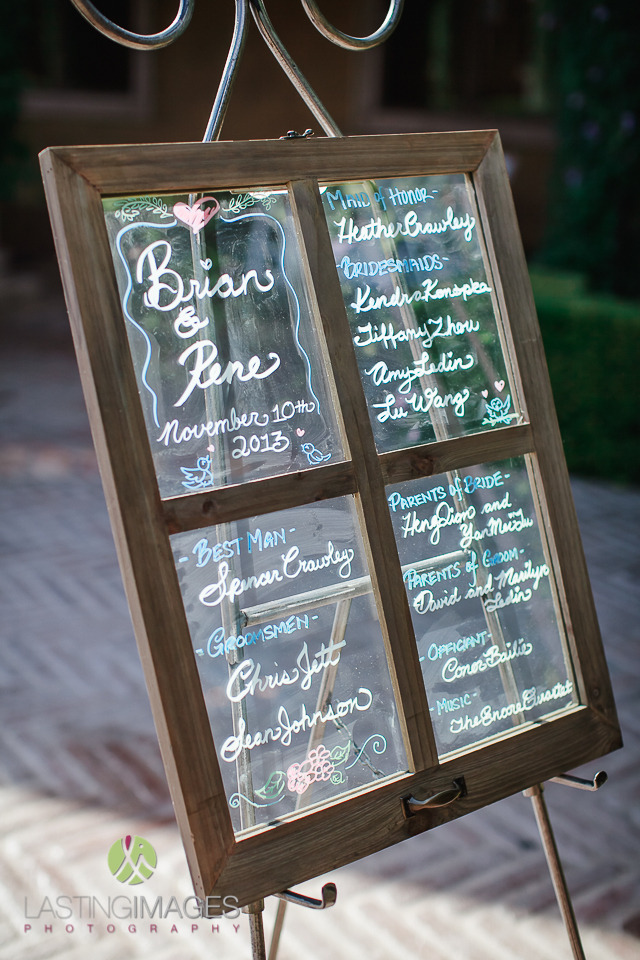 Brian
&
Rene
November 10th
2013
Maid of Honor-
Heather Crawley
-Bridesmaids-
Kendra Konopka
Tiffany Zhou
Amy Ledin
Lu Wang
-Best Man-
Spencer Crawley
-Groomsmen-
Chris Jett
Sean Johnson
-Parents of Bride-
and
-Parents of Groom-
David and Marilyn
Ledin
-Officiant-
Conor Bailie
-Music-
The Encore Quartet
LASTINGIMAGES
PHOTOGRAPHY